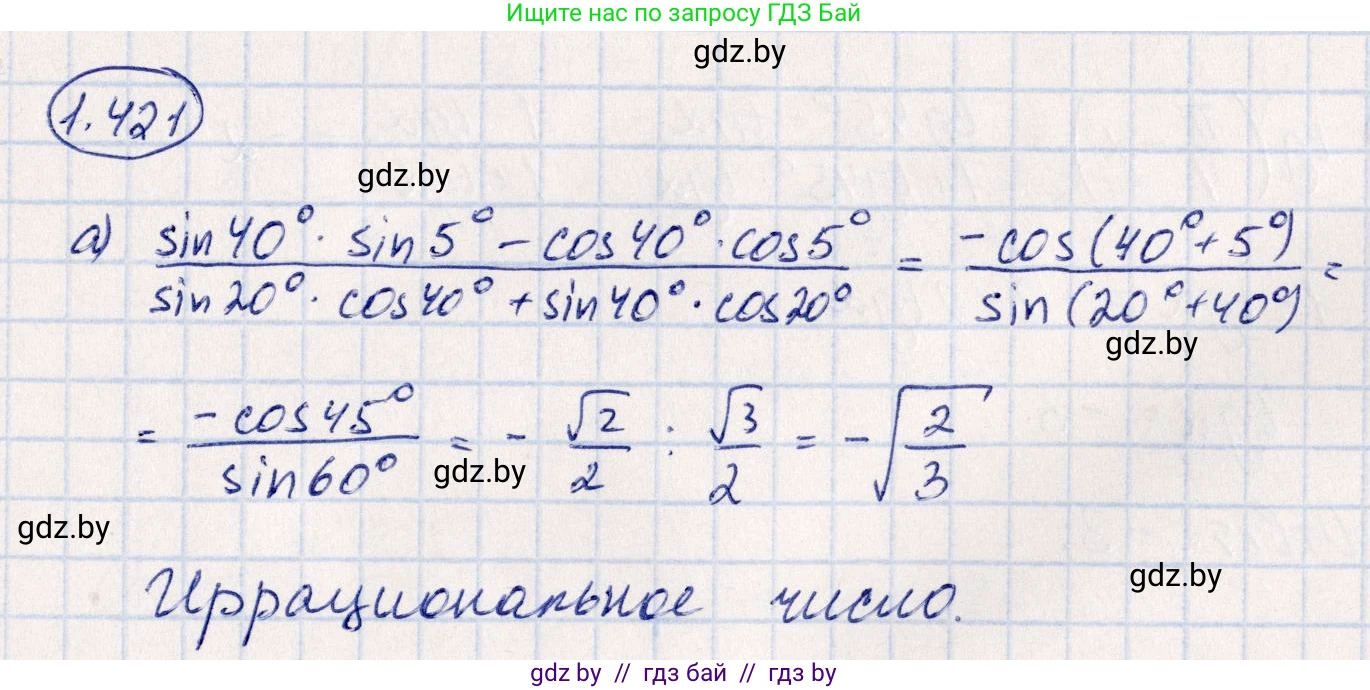 Ищите нас по запросу ГДЗ Бай
gdz.by
1.421
gdz.by
а) (sin 40° · sin 5° − cos 40° · cos 5°) / (sin 20° · cos 40° + sin 40° · cos 20°) = −cos(40° + 5°) / sin(20° + 40°) =
gdz.by
= −cos 45° / sin 60° = − √2/2 : √3/2 = −√(2/3)
gdz.by
gdz.by
gdz.by
Иррациональное число.
gdz by // гдз бай // gdz by